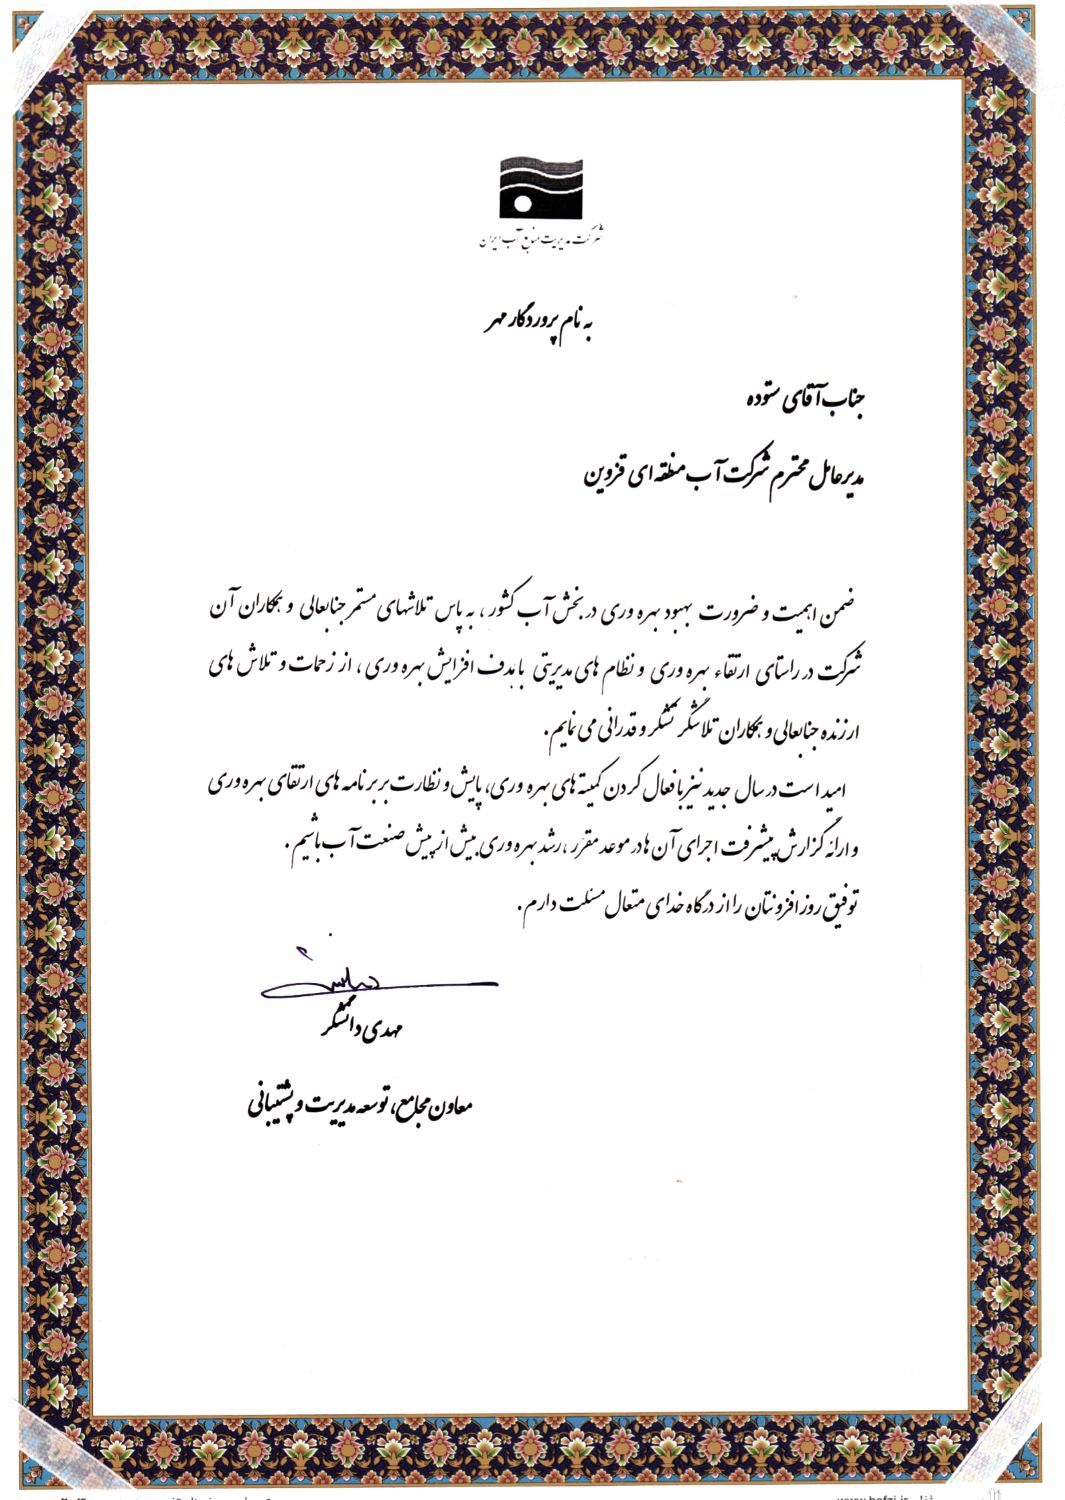 شرکت مدیریت منابع آب ایران
به نام پروردگار مهر
جناب آقای ستوده
مدیرعامل محترم شرکت آب منطقه ای قزوین
ضمن اهمیت و ضرورت بهبود بهره وری در بخش آب کشور ، به پاس تلاشهای مستمر جنابعالی و همکاران آن
شرکت در راستای ارتقاء بهره وری و نظام های مدیریتی با هدف افزایش بهره وری ، از زحمات و تلاش های
ارزنده جنابعالی و همکاران تلاشگر تشکر و قدرانی می نمایم.
امید است در سال جدید نیز با فعال کردن کمیته های بهره وری، پایش و نظارت بر برنامه های ارتقای بهره وری
و ارائه گزارش پیشرفت اجرای آن ها در موعد مقرر ، رشد بهره وری بیش از پیش صنعت آب باشیم.
توفیق روز افزونتان را از درگاه خدای متعال مسئلت دارم.
مهدی دانشگر
معاون مجامع، توسعه مدیریت و پشتیبانی